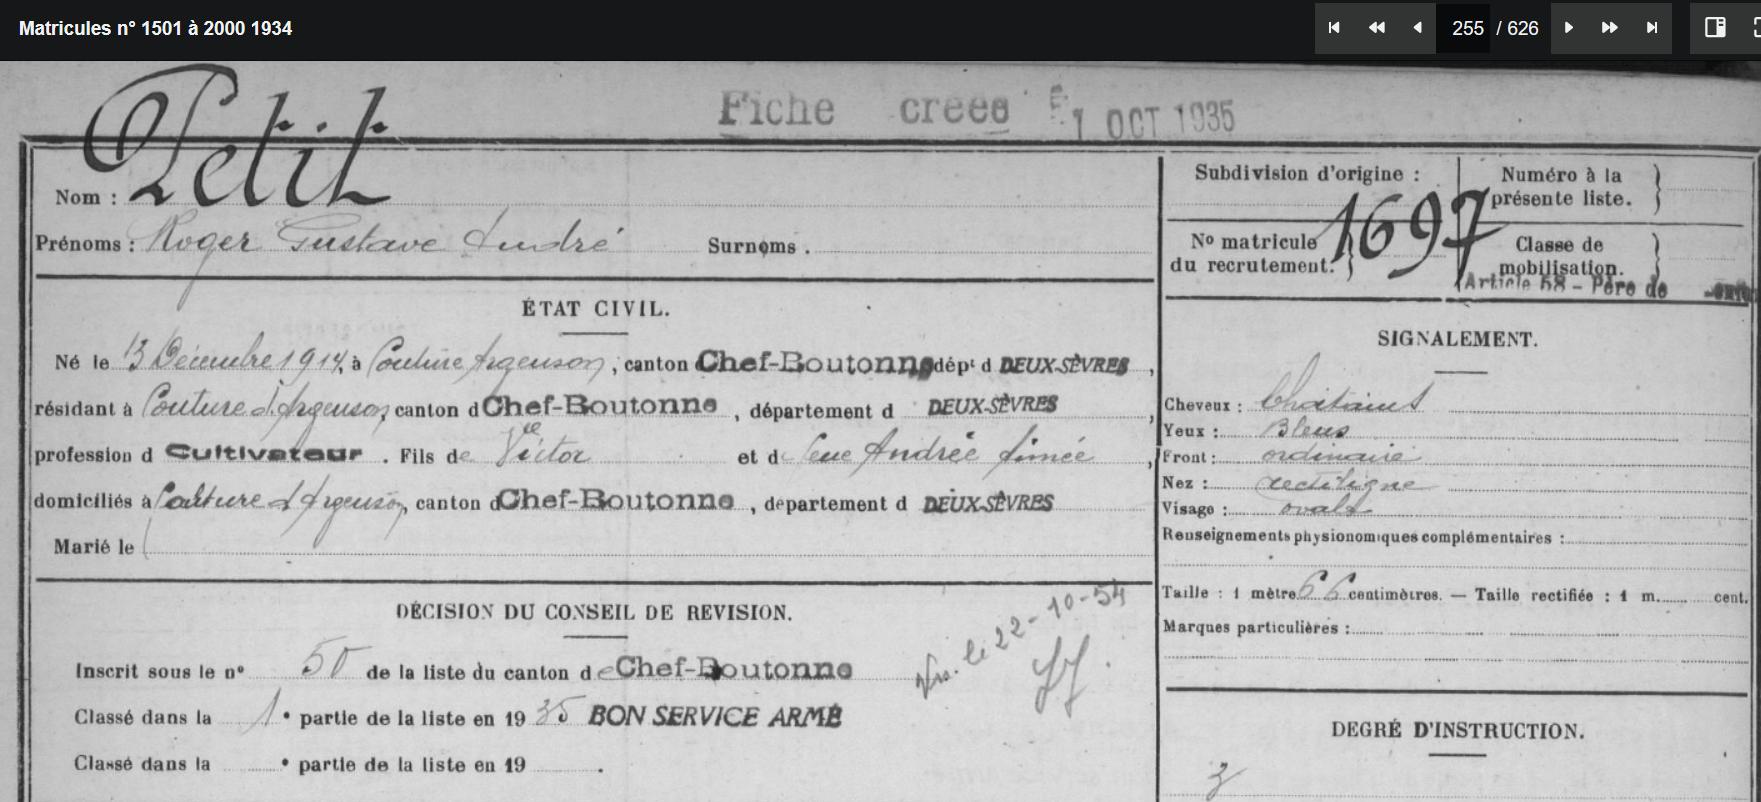 Matricules n° 1501 à 2000 1934
255 / 626
Fiche creee 1 OCT 1935
Nom : Petit
Prénoms : Roger Gustave André Surnoms .
ÉTAT CIVIL.
Né le 13 Décembre 1914, à Couture Argenson, canton Chef-Boutonne dépt d DEUX-SÈVRES,
résidant à Couture d'Argenson, canton d Chef-Boutonne, département d DEUX-SÈVRES,
profession d Cultivateur . Fils de Victor et d Andrée Aimée,
domiciliés à Couture d'Argenson, canton d Chef-Boutonne, département d DEUX-SÈVRES
Marié le
DÉCISION DU CONSEIL DE REVISION.
Inscrit sous le n° 50 de la liste du canton de Chef-Boutonne
Classé dans la 1e partie de la liste en 1935 BON SERVICE ARMÉ
Classé dans la e partie de la liste en 19 .
le 22-10-54
Subdivision d'origine :
Numéro à la présente liste.
N° matricule du recrutement. 1697
Classe de mobilisation.
Article 58 - Père de
SIGNALEMENT.
Cheveux : Chatains
Yeux : Bleus
Front : ordinaire
Nez : rectiligne
Visage : ovale
Renseignements physionomiques complémentaires :
Taille : 1 mètre 66 centimètres. — Taille rectifiée : 1 m. cent.
Marques particulières :
DEGRÉ D'INSTRUCTION.
3